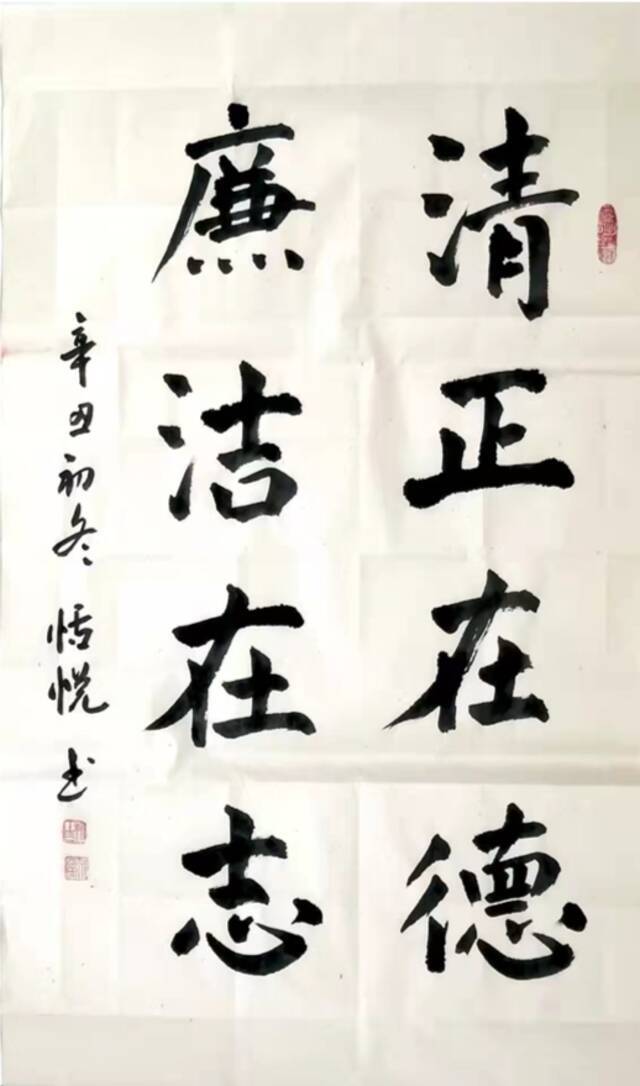 清正在德
廉洁在志
辛丑初冬 恬悦书